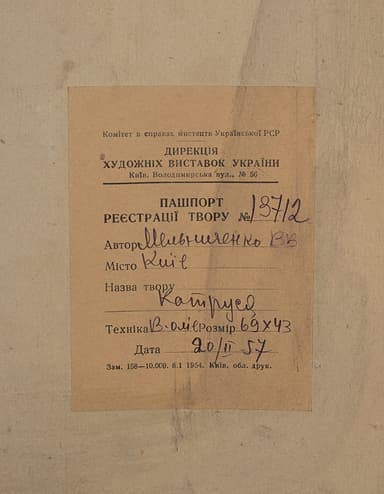 Комітет в справах мистецтв Української РСР
ДИРЕКЦІЯ
ХУДОЖНІХ ВИСТАВОК УКРАЇНИ
Київ. Володимирська вул., № 56
ПАШПОРТ
РЕЄСТРАЦІЇ ТВОРУ № 13712
Автор Мельниченко ВВ
Місто Київ
Назва твору
Катруся
Техніка В-олія Розмір 69х43
Дата 20/II 57
Зам. 158—10.000. 6.1 1954. Київ. обл. друк.